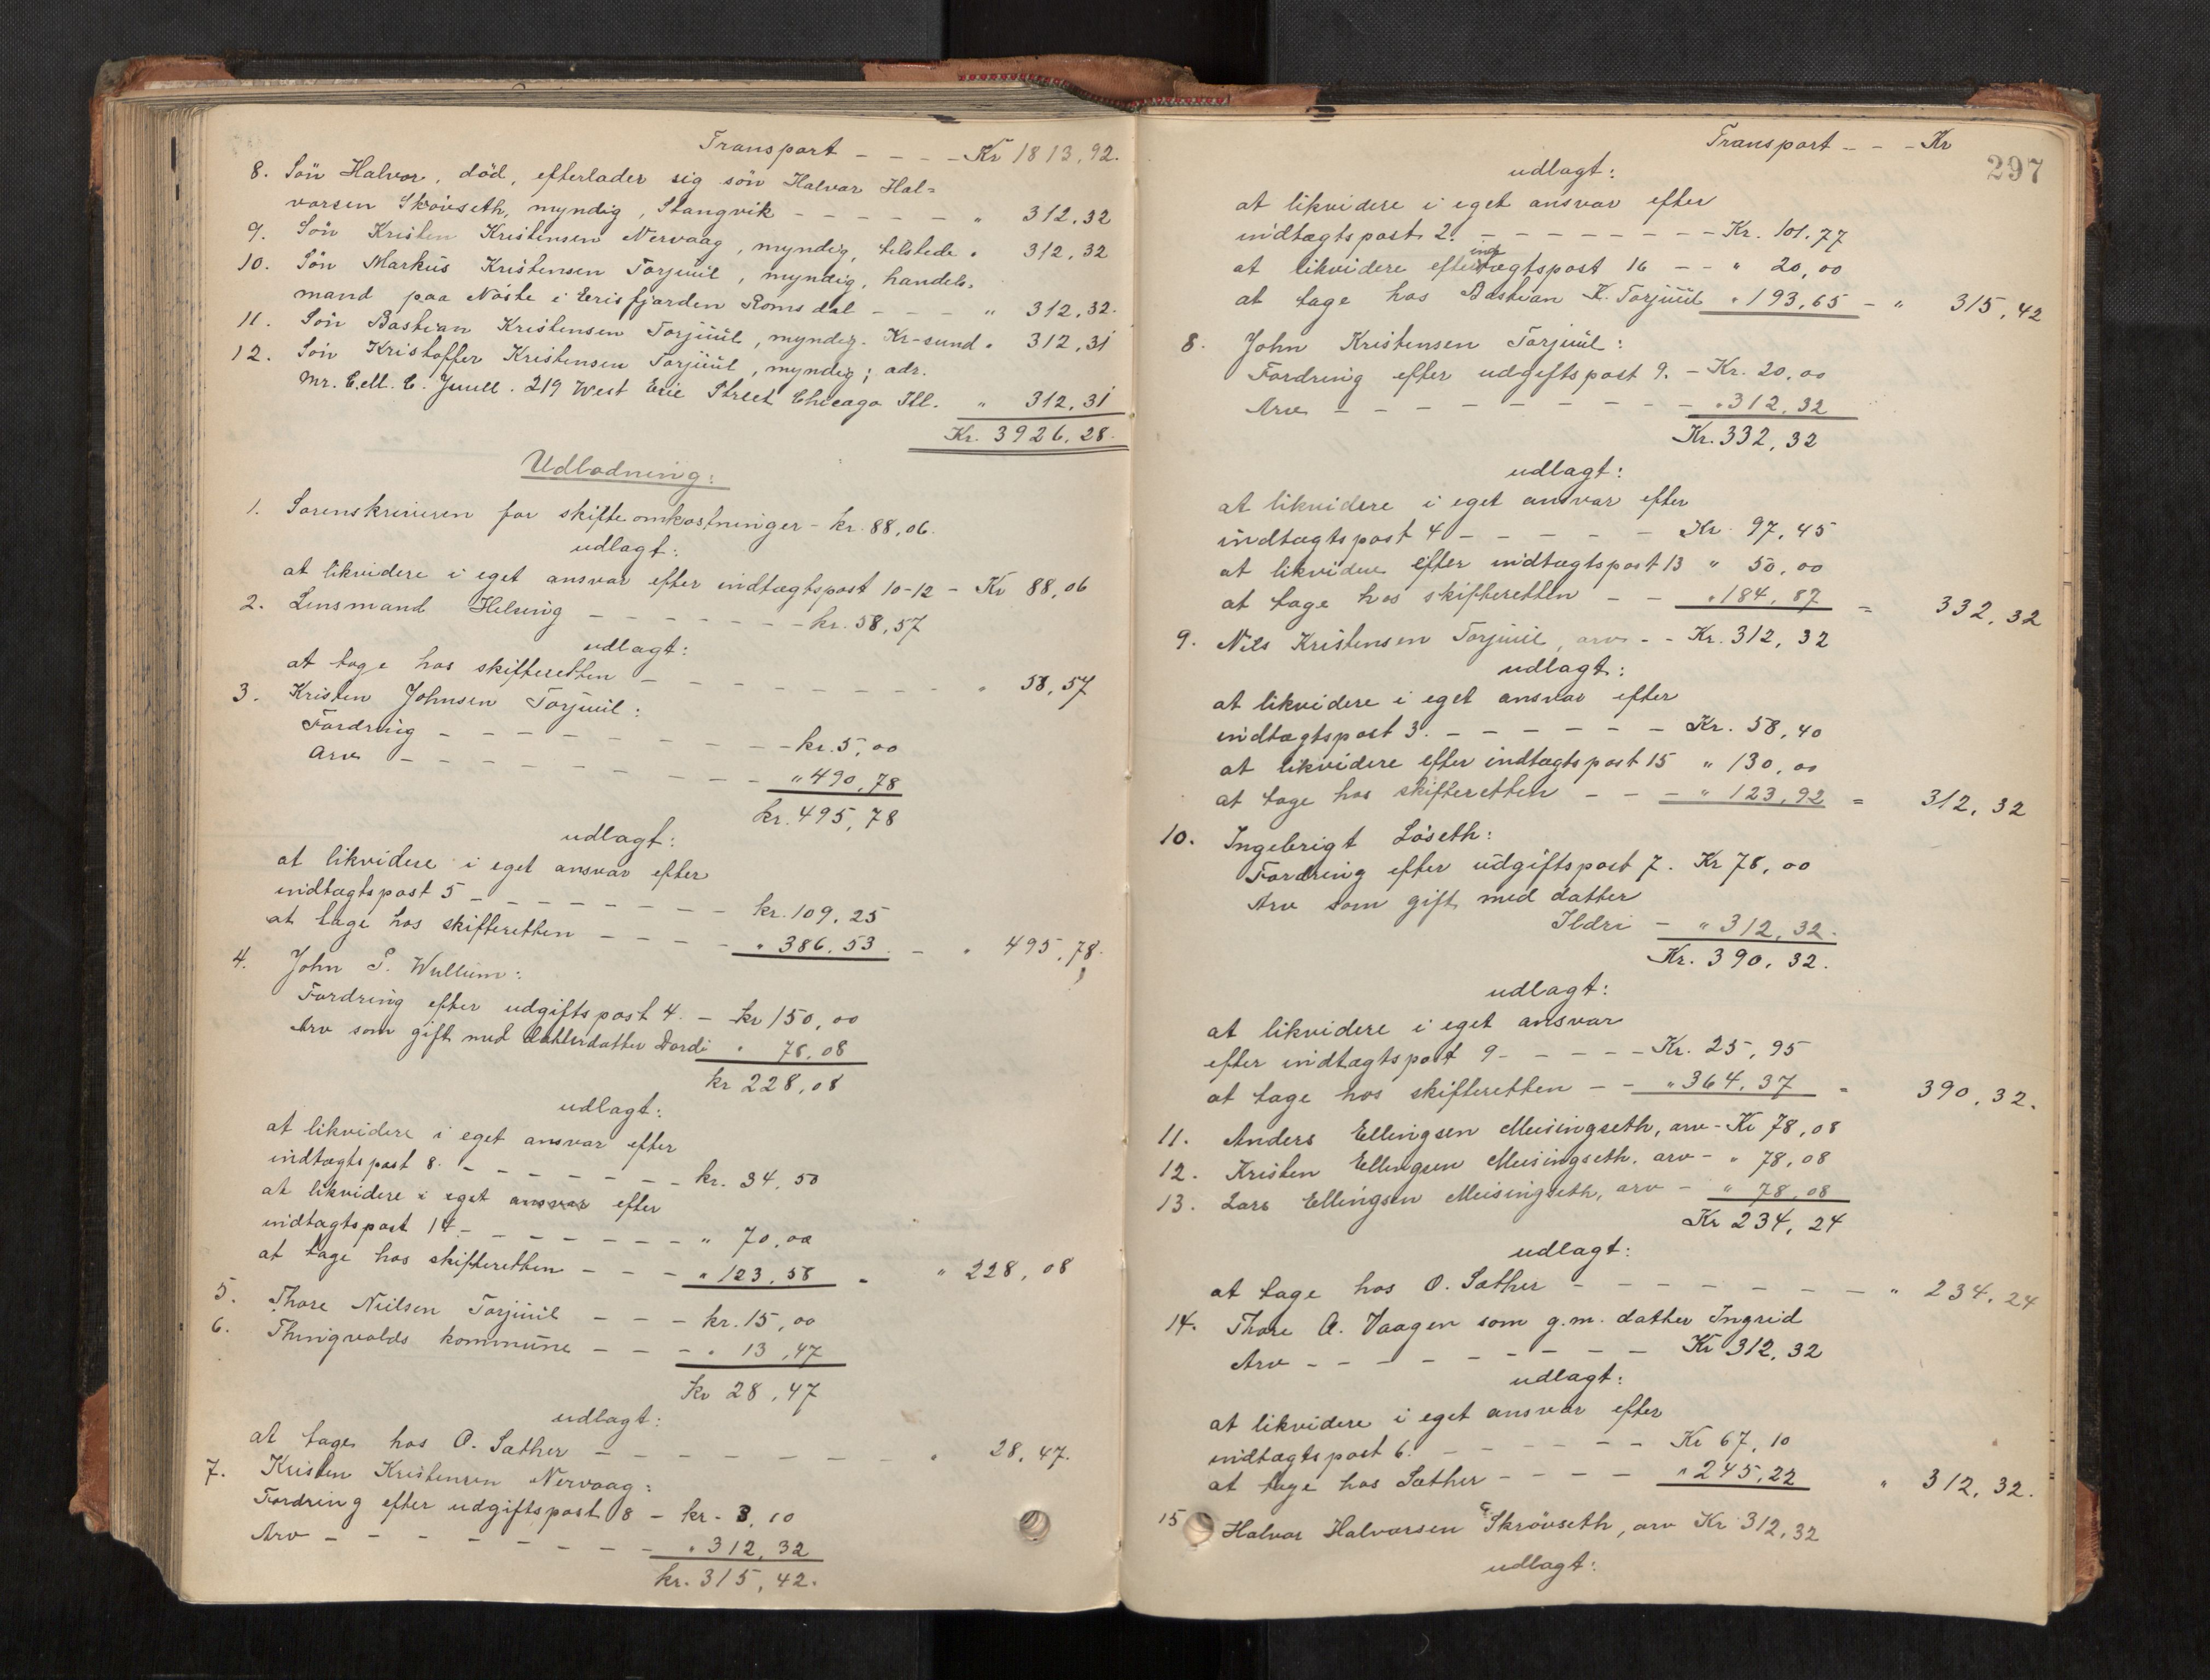 Transport - - - - Kr 1813,92.
8. Sön Halvor, död, efterlader sig sön Halvor Hal=
vorsen Skrövseth, myndig, Stangvik - - - - - " 312,32
9. Sön Kristen Kristensen Nervaag, myndig, tilstede " 312,32
10. Sön Markus Kristensen Torjuul, myndig, handels=
mand paa Nöste i Eerisfjorden Romsdal - - - " 312,32.
11. Sön Bastian Kristensen Torjuul, myndig. Kr-sund " 312,31
12. Sön Kristoffer Kristensen Torjuul, myndig; adr.
Mr. C. M. C. Juull. 219 West Erie Street Chicago Ill. " 312,31
Kr. 3926,28.
Udlodning:
1. Sorenskriveren for skifteomkostninger - kr. 88,06.
udlagt:
at likvidere i eget ansvar efter indtægtspost 10-12 - Kr 88,06
2. Lensmand Helsing - - - - - - - kr. 58,57
udlagt:
at tage hos skifteretten - - - - - - - - - " 58,57
3. Kristen Johnsen Torjuul:
Fordring - - - - - - - - - kr. 5,00
Arv - - - - - - - - - " 490,78
kr. 495,78
udlagt:
at likvidere i eget ansvar efter
indtægtspost 5 - - - - - - - - kr. 109,25
at tage hos skifteretten - - - - " 386,53. - " 495,78.
4. John P. Wullum:
Fordring efter udgiftspost 4. - kr 150,00
Arv som gift med datterdatter Dordi " 78,08
kr 228,08
udlagt:
at likvidere i eget ansvar efter
indtægtspost 8. - - - - - - - kr. 34,50
at likvidere i eget ansvar efter
indtægtspost 14 - - - - - - - " 70,00
at tage hos skifteretten - - - " 123,58 = " 228,08
5. Thore Nielsen Torjuul - - - kr. 15,00
6. Thingvolds kommune - - - " 13,47
kr 28,47
udlagt:
at tage hos O. Sæther - - - - - - - - " 28,47.
7. Kristen Kristensen Nervaag:
Fordring efter udgiftspost 8 - kr - 3,10
Arv - - - - - - - - " 312,32
kr. 315,42.
Transport - - - Kr
297
udlagt:
at likvidere i eget ansvar efter
indtægtspost 2. - - - - - - - - Kr. 101.77
at likvidere efter indtægtspost 16 - - " 20,00
at tage hos Bastian K. Torjuul " 193,65 - " 315,42
8. John Kristensen Torjuul:
Fordring efter udgiftspost 9. - Kr. 20,00
Arv - - - - - - - - - " 312,32
Kr. 332,32
udlagt:
at likvidere i eget ansvar efter
indtægtspost 4 - - - - - Kr. 97,45
at likvidere efter indtægtspost 13 " 50,00
at tage hos skifteretten - - " 184,87 = 332,32
9. Nils Kristensen Torjuul, arv - - Kr. 312,32
udlagt:
at likvidere i eget ansvar efter
indtægtspost 3. - - - - - - Kr. 58,40
at likvidere efter indtægtspost 15 " 130,00
at tage hos skifteretten - - - " 123,92 = 312,32
10. Ingebrigt Löseth:
Fordring efter udgiftspost 7. Kr 78,00
Arv som gift med datter
Ildri - " 312,32.
Kr. 390,32.
udlagt:
at likvidere i eget ansvar
efter indtægtspost 9 - - - - - Kr. 25,95
at tage hos skifteretten - - " 364,37 = 390,32.
11. Anders Ellingsen Meisingseth, arv - Kr 78,08
12. Kristen Ellingsen Meisingseth. arv - " 78,08
13. Lars Ellingsen Meisingseth, arv - " 78,08
Kr 234,24
udlagt:
at tage hos O. Sæther - - - - - - - " 234,24
14. Thore A. Vaagen som g.m. datter Ingrid
Arv - - - - - - - - Kr 312,32
udlagt:
at likvidere i eget ansvar efter
indtægtspost 6. - - - - - - Kr 67,10
at tage hos Sæther - - - - " 245,22 " 312,32.
15 Halvor Halvorsen Skrövseth, arv Kr 312,32
udlagt: